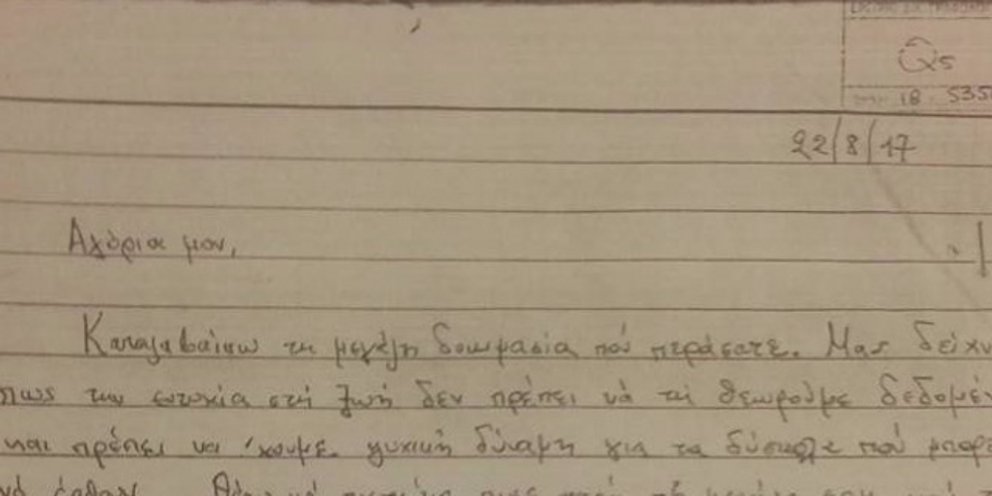 Q5
18 535
22/8/17
Αγόρια μου,
Καταλαβαίνω τη μεγάλη δοκιμασία πού περάσατε. Μας δείχν
πως την ευτυχία στή ζωή δεν πρέπει νά τή θεωρούμε δεδομέν
και πρέπει να 'χουμε ψυχική δύναμη για τα δύσκολα πού μπορε
νά έρθουν.